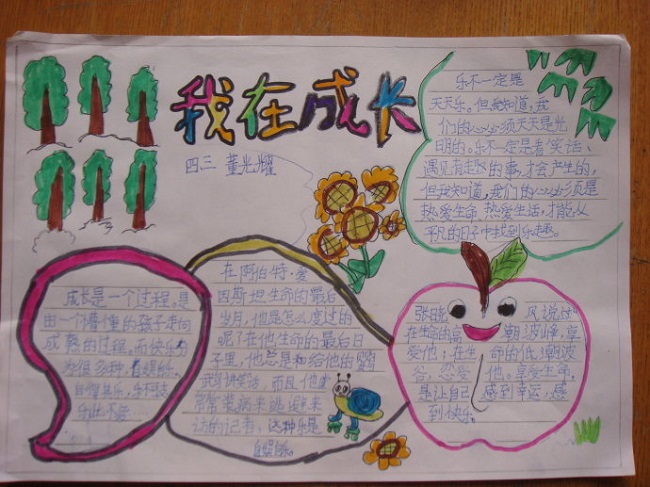 我在成长
四三 董光耀
乐不一定是
天天乐。但我知道,我
们的心必须天天是光
明的。乐不一定是看笑话、
遇见有趣的事,才会产生的,
但我知道,我们的心必须是
热爱生命、热爱生活,才能从
平凡的日子中找到乐趣。
成长是一个过程,是
由一个懵懂的孩子走向
成熟的过程,而快乐
为很多种,
自娱其乐,乐不
在阿伯特·爱
因斯坦生命的最后
岁月,他是怎么度过的
呢?在他生命的最后日
子里,他总是和给他的鹦
鹉讲笑话,而且他
常常装病来逃避来
访的记者,这种乐是
自娱
张晓风说过:
在生命的高潮波峰,享
受他;在生命的低潮波
谷,忍受他。享受生命,
是让自己感到幸运,感
到快乐。